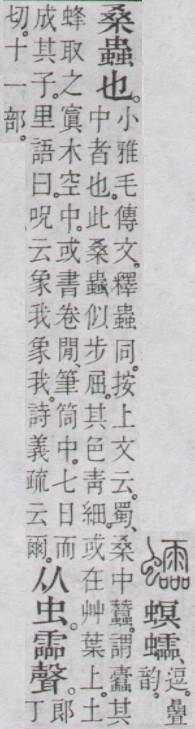 螟𧕅、逗。疊
韵。
桑蟲也。小雅毛傳文。釋蟲同。按上文云。蜀、桑中蠶。謂蠹其
中者也。此桑蟲似步屈。其色青細。或在艸葉上。土
蜂取之寘木空中。或書卷閒、筆筒中。七日而
成其子。里語曰。呪云象我象我。詩義疏云爾。
从虫霝聲。郎
丁
切。十一部。